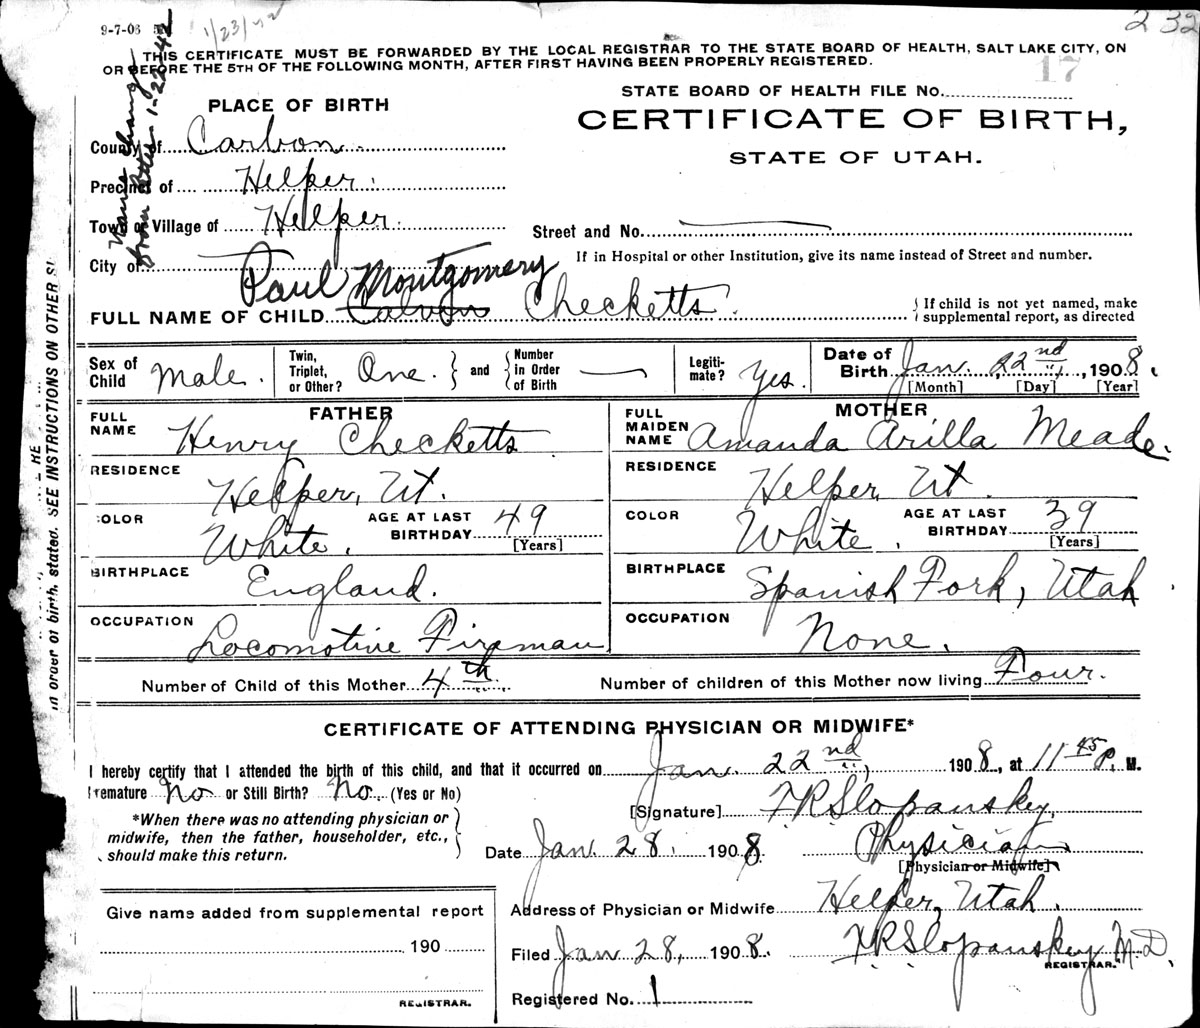 9-7-06
1/23/42
232
THIS CERTIFICATE MUST BE FORWARDED BY THE LOCAL REGISTRAR TO THE STATE BOARD OF HEALTH, SALT LAKE CITY, ON
OR BEFORE THE 5TH OF THE FOLLOWING MONTH, AFTER FIRST HAVING BEEN PROPERLY REGISTERED.
17
Name Change
from 1-22-42
PLACE OF BIRTH
STATE BOARD OF HEALTH FILE No.
CERTIFICATE OF BIRTH,
STATE OF UTAH.
County of Carbon
Precinct of Helper
Town or Village of Helper
Street and No.
City of
If in Hospital or other Institution, give its name instead of Street and number.
Paul Montgomery
FULL NAME OF CHILD Calvon Checketts.
If child is not yet named, make
supplemental report, as directed
Sex of Child Male.
Twin, Triplet, or Other? One.
and
Number in Order of Birth
Legiti-mate? Yes.
Date of Birth Jan. 22nd, 1908.
[Month] [Day] [Year]
FATHER
FULL NAME Henry Checketts
RESIDENCE Helper, Ut.
COLOR White.
AGE AT LAST BIRTHDAY 49
[Years]
BIRTHPLACE England.
OCCUPATION Locomotive Fireman
MOTHER
FULL MAIDEN NAME Amanda Arilla Meade.
RESIDENCE Helper, Ut.
COLOR White.
AGE AT LAST BIRTHDAY 39
[Years]
BIRTHPLACE Spanish Fork, Utah
OCCUPATION None.
Number of Child of this Mother 4th.
Number of children of this Mother now living Four.
CERTIFICATE OF ATTENDING PHYSICIAN OR MIDWIFE*
I hereby certify that I attended the birth of this child, and that it occurred on Jan. 22nd, 1908, at 11 45 P. M.
Premature No or Still Birth? No. (Yes or No)
*When there was no attending physician or
midwife, then the father, householder, etc.,
should make this return.
[Signature] F R Slopanskey
Date Jan. 28. 1908
Physician
[Physician or Midwife]
Give name added from supplemental report
190
REGISTRAR.
Address of Physician or Midwife Helper, Utah.
Filed Jan 28, 1908.
F R Slopanskey M.D.
REGISTRAR.
Registered No. 1
in order of birth, stated. SEE INSTRUCTIONS ON OTHER SI